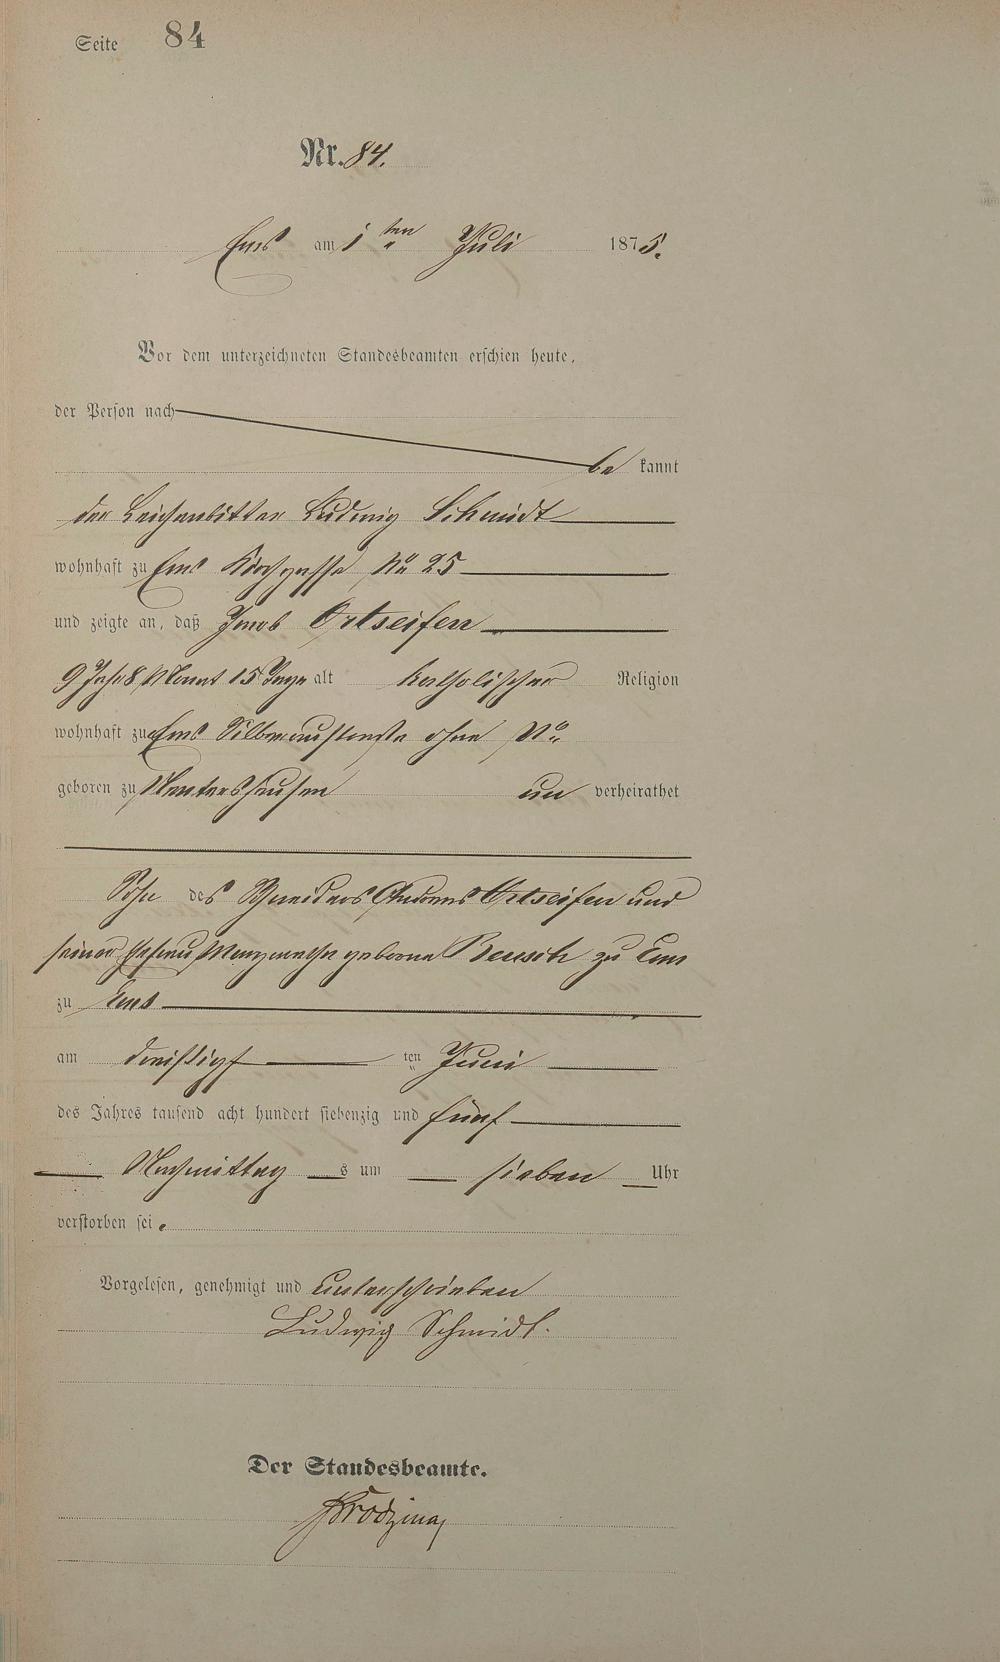 Seite 84
Nr. 84.
Ems am 1ten Juli 1875.
Vor dem unterzeichneten Standesbeamten erschien heute,
der Person nach
be kannt
der Leichenbitter Ludwig Schmidt
wohnhaft zu Ems Kirchgasse No 25
und zeigte an, daß Jacob Ortseifen
9 Jahr 8 Monat 15 Tage alt katholischer Religion
wohnhaft zu Ems Silberaustraße ohne No
geboren zu Nentershausen un verheirathet
Sohn des Schneiders Andreas Ortseifen und
seiner Ehefrau Margarethe geborne zu Ems
zu Ems
am dreißigst ten Juni
des Jahres tausend acht hundert siebenzig und fünf
Nachmittag s um sieben Uhr
verstorben sei.
Vorgelesen, genehmigt und unterschrieben
Ludwig Schmidt.
Der Standesbeamte.